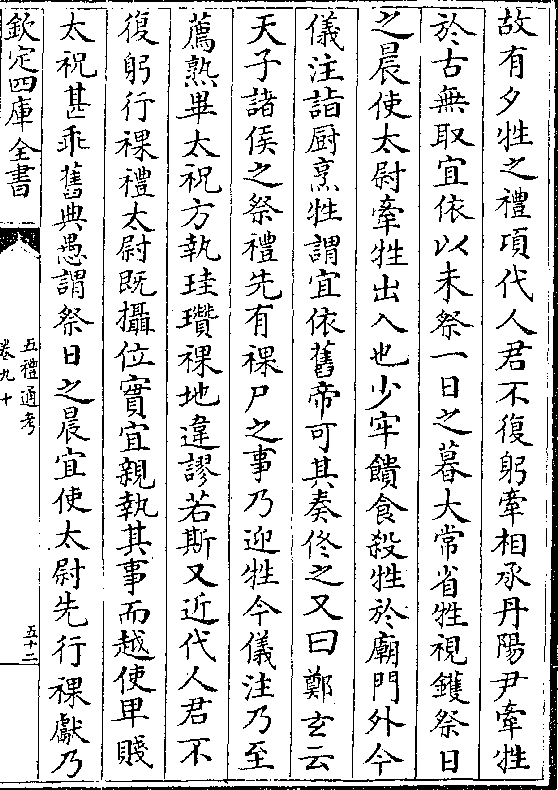 故有夕牲之禮項代人君不復躬牽相承丹陽尹牽牲
於古無取宜依以未祭一日之暮大常省牲視鑊祭日
之晨使太尉牽牲出入也少牢饋食殺牲於廟門外今
儀注詣厨烹牲謂宜依舊帝可其奏佟之又曰鄭玄云
天子諸侯之祭禮先有祼尸之事乃迎牲今儀注乃至
薦熟畢太祝方執珪瓚祼地違謬若斯又近代人君不
復躬行祼禮太尉既攝位實宜親執其事而越使卑賤
太祝甚乖舊典愚謂祭日之晨宜使太尉先行祼獻乃
欽定四庫全書
五禮通考
卷九十
五十二